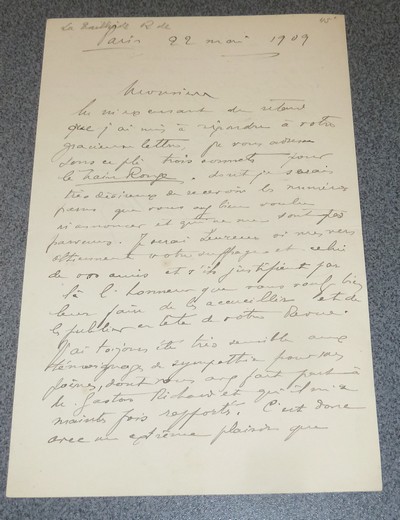 R de
Paris 22 mai 1909
Monsieur
En m'excusant du retard
que j'ai mis à répondre à votre
gracieuse lettre, je vous adresse
sous ce pli trois sonnets pour
le Rouge. dont je serais
très désireux de recevoir les numéros
parus que vous avez bien voulu
m'annoncer et qui ne me sont pas
parvenus. J'serai heureux si mes vers
obtiennent votre suffrage et celui
de vos amis et s'ils justifient par
là l'honneur que vous voulez bien
leur faire de les accueillir et de
les publier en tête de votre Revue.
J'ai toujours été très sensible aux
témoignages de sympathie pour mes
poèmes, dont vous avez fait part à
M. Gaston et qu'il m'a
maintes fois rapportés. C'est donc
avec un extrême plaisir que